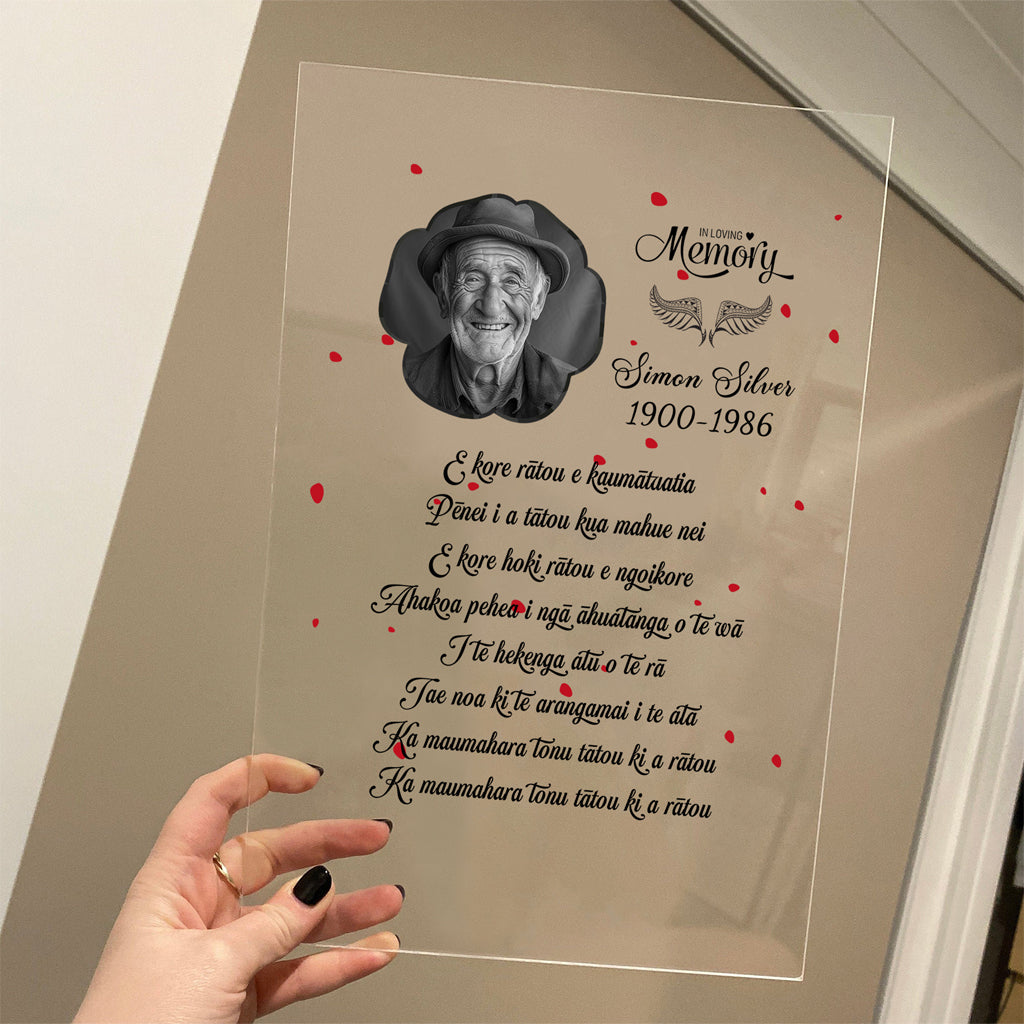 IN LOVING
Memory
Simon Silver
1900-1986
E kore rātou e kaumātuatia
Pēnei i a tātou kua mahue nei
E kore hoki rātou e ngoikore
Ahakoa pehea i ngā āhuatanga o te wā
I te hekenga atu o te rā
Tae noa ki te arangamai i te ata
Ka maumahara tonu tātou ki a rātou
Ka maumahara tonu tātou ki a rātou